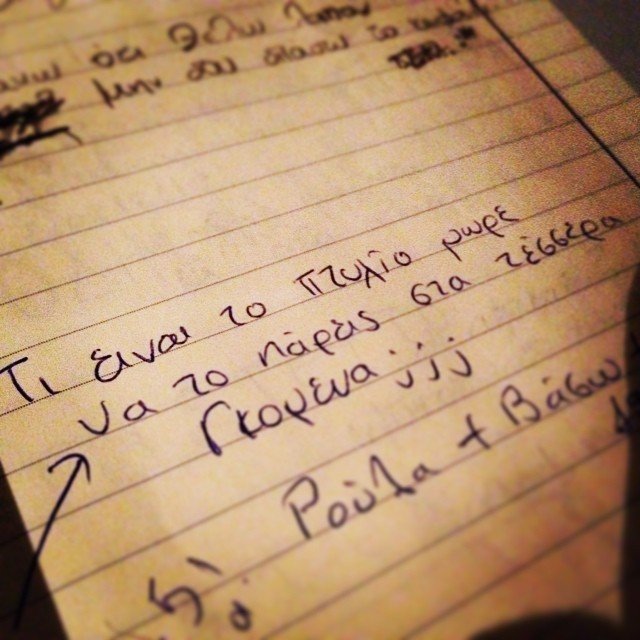 ότι θέλω
μην σου σπασω το
Τι είναι το πτυλίο μωρέ
να το πάρεις στα τέσσερα
Γκομενα;;;
Ρούλα + Βάσω